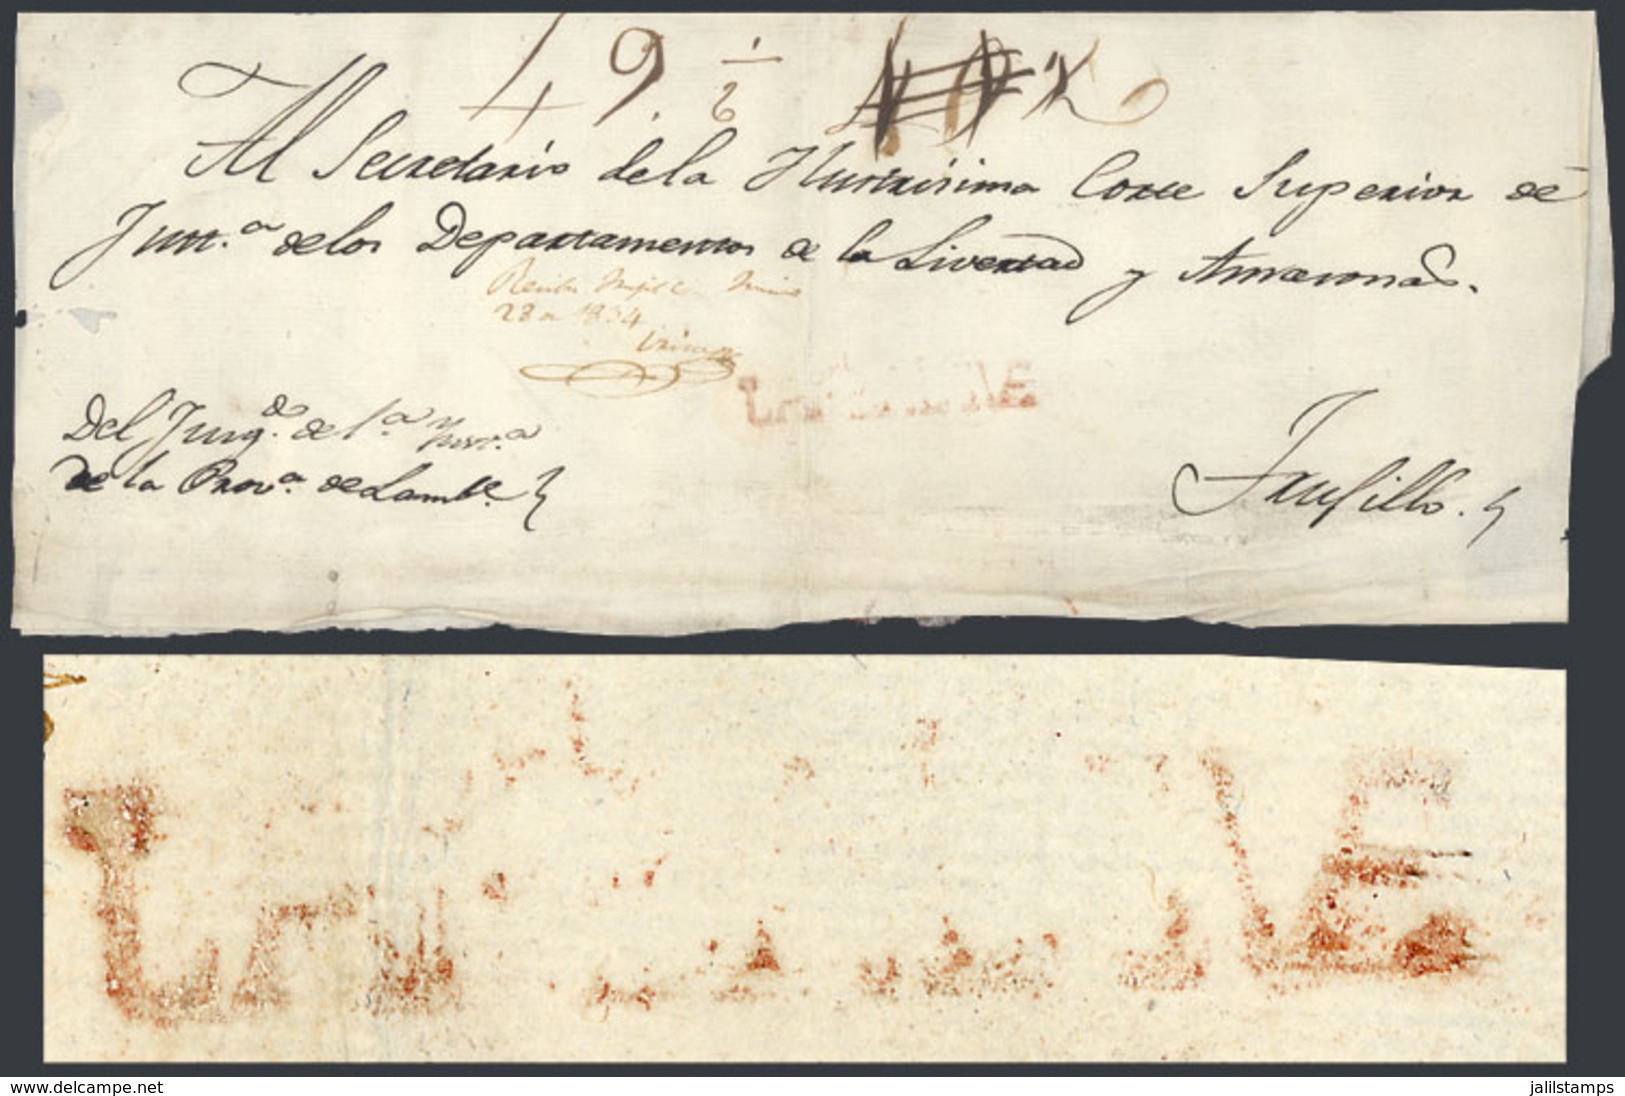 49. 1/2
Al Secretario de la Ilustrisima Corte Superior de
Just.ª de los Departamentos de la Livertad y Amazonas.
28 de 1834
Del Juzg.do de 1.ª Ynst.ª
de la Prov.ª de Lamb.e
Truxillo.
L VE
www.delcampe.net
jalilstamps